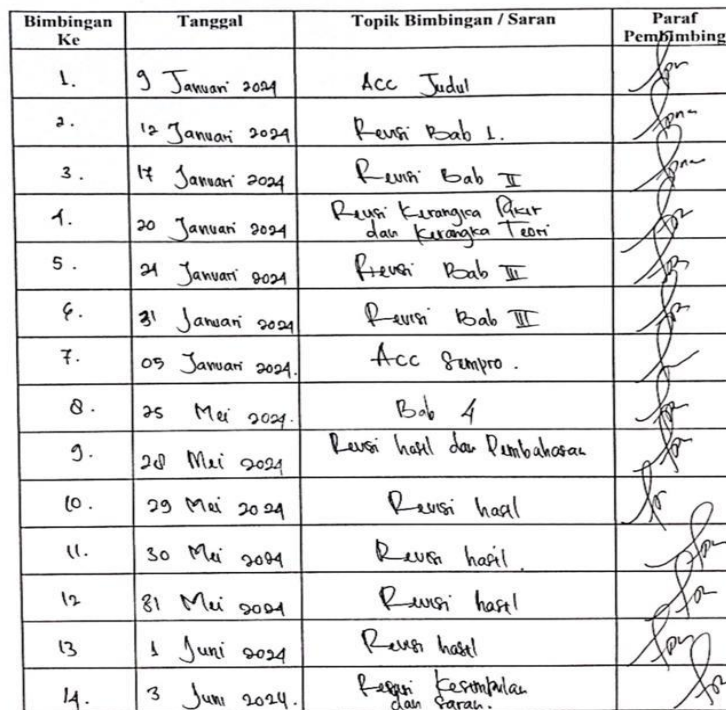 Bimbingan Ke Tanggal Topik Bimbingan / Saran Paraf Pembimbing
1. 9 Januari 2024 Acc Judul
2. 12 Januari 2024 Revisi Bab 1.
3. 17 Januari 2024 Revisi Bab II
4. 20 Januari 2024 Revisi Kerangka Pikir
dan Kerangka Teori
5. 24 Januari 2024 Revisi Bab III
6. 31 Januari 2024 Revisi Bab III
7. 05 Januari 2024. Acc Sempro.
8. 25 Mei 2024. Bab 4
9. 28 Mei 2024 Revisi hasil dan Pembahasan
10. 29 Mei 2024 Revisi hasil
11. 30 Mei 2024 Revisi hasil.
12 31 Mei 2024 Revisi hasil
13 1 Juni 2024 Revisi hasil
14. 3 Juni 2024. Revisi Kesimpulan
dan Saran.